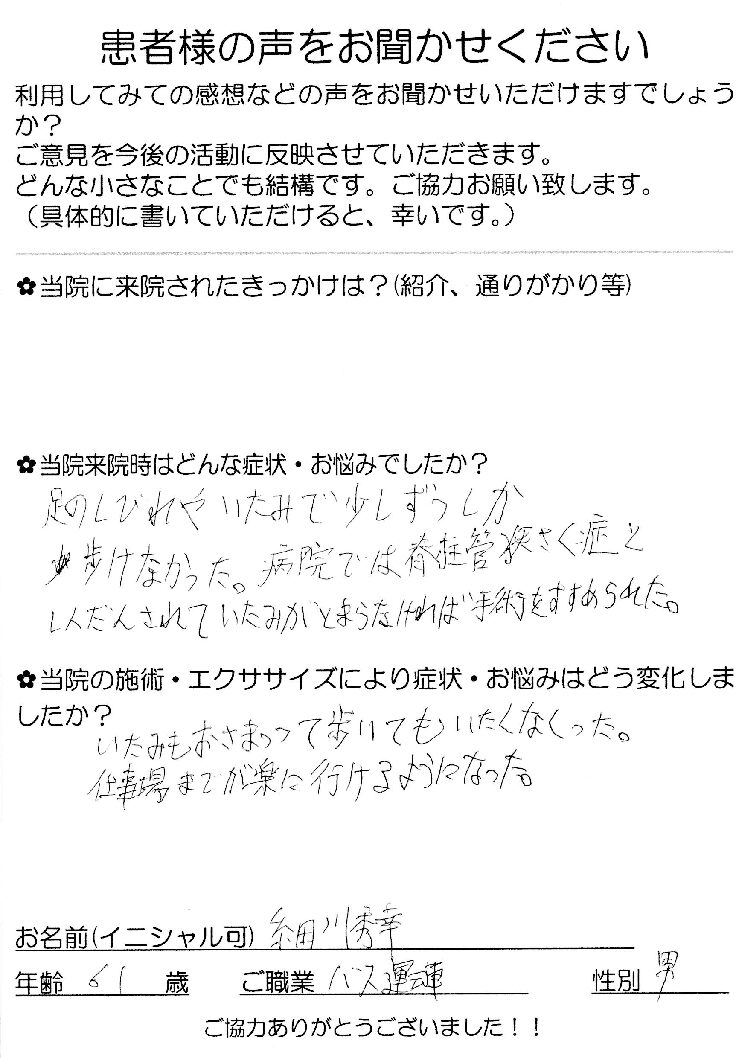 患者様の声をお聞かせください
利用してみての感想などの声をお聞かせいただけますでしょう
か？
ご意見を今後の活動に反映させていただきます。
どんな小さなことでも結構です。ご協力お願い致します。
（具体的に書いていただけると、幸いです。）
✿当院に来院されたきっかけは？(紹介、通りがかり等)
✿当院来院時はどんな症状・お悩みでしたか？
足のしびれやいたみで少しずつしか
歩けなかった。病院では脊柱管狭さく症と
しんだんされていたみがとまらなければ手術をすすめられた。
✿当院の施術・エクササイズにより症状・お悩みはどう変化しま
したか？
いたみもおさまって歩いてもいたくなくなった。
仕事場までが楽に行けるようになった。
お名前(イニシャル可) 細川秀幸
年齢 61 歳 ご職業 バス運転 性別 男
ご協力ありがとうございました！！